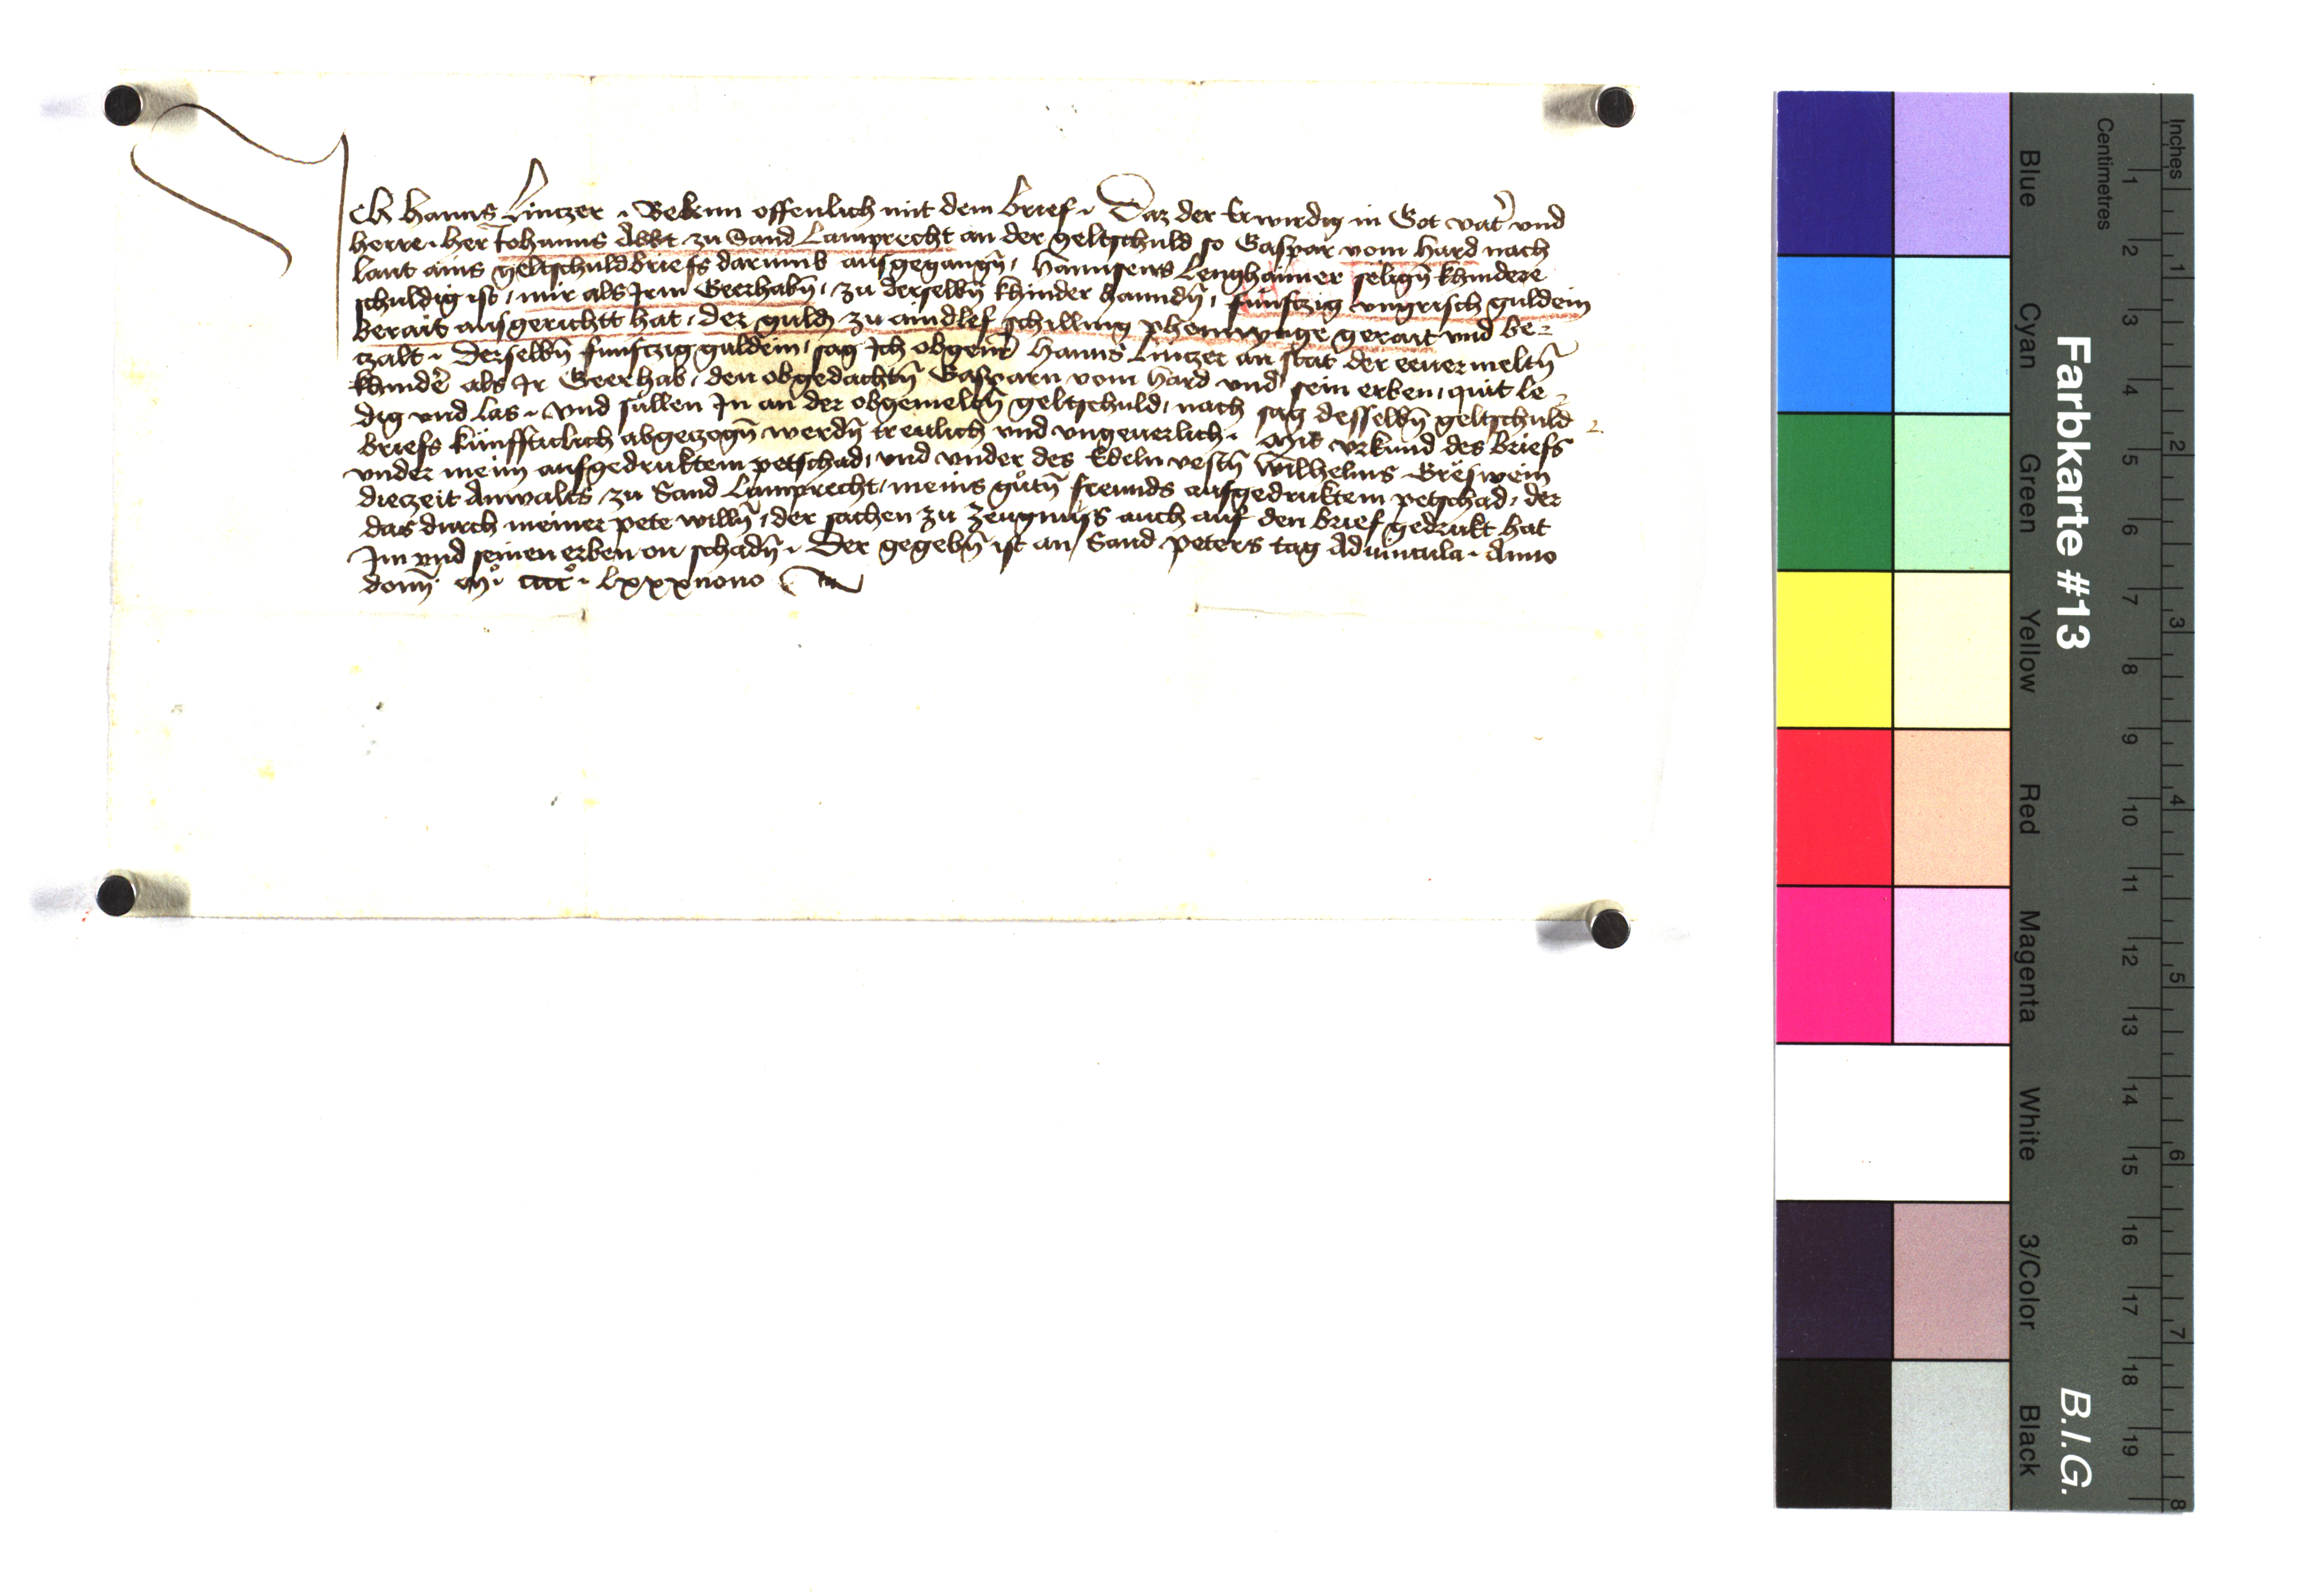 Ich Hanns Lintzer . Bekenn offenlich mit dem brief . Daz der Erwirdig in Got vat̉ vnd
herre . her Johanns Abbt zu Sand Lamprecht an der geltschuld so Gaspar vom Hard nach
laut ains geltschuldbriefs darumb ausgegangn̄ , Hannsens Lenghaimer selign̄ khindere
schuldig ist , mir als Irm Geerhabn̄ , zu derselbn̄ khinder hanndn̄ , funftzig vngrisch guldein
berait ausgerichtt hat , der guld zu aindlef schilling phennynge gerait vnd be=
tzalt . Derselbn̄ funftzig guldein , sag Ich obgent̉ Hanns Lintzer an stat der eeuermeltn̄
khindẻ als Ir Geerhab , den obgedachtn̄ Gasparn vom Hard vnd sein erben , quit le=
dig vnd las . vnd sullen In an der obgemeltn̄ geltschuld , nach sag desselbn̄ geltschuld
briefs künffticlich abgetzogn̄ werdn̄ treulich vnd vngeuerlich . Mit vrkund des briefs
vnder meim aufgedruktem petschad , vnd vnder des Edeln vestn̄ Wilhelms Gräswein
dietzeit Anwalts zu Sand Lamprecht , meins gůtn̄ freunds aufgedruktem petschad , der
das durch meiner pete willn̄ , der sachen zu zeugnuss auch auf den brief gedrukt hat
Im vnd seinen erben on schadn̄ . Der gegebn̄ ist an Sand peters tag Aduincula . Anno
domī . mͦ . ccccͦ . lxxxnono
Farbkarte #13
B.I.G.
Inches
Centimetres
1 2 3 4 5 6 7 8
1 2 3 4 5 6 7 8 9 10 11 12 13 14 15 16 17 18 19
Blue
Cyan
Green
Yellow
Red
Magenta
White
3/Color
Black